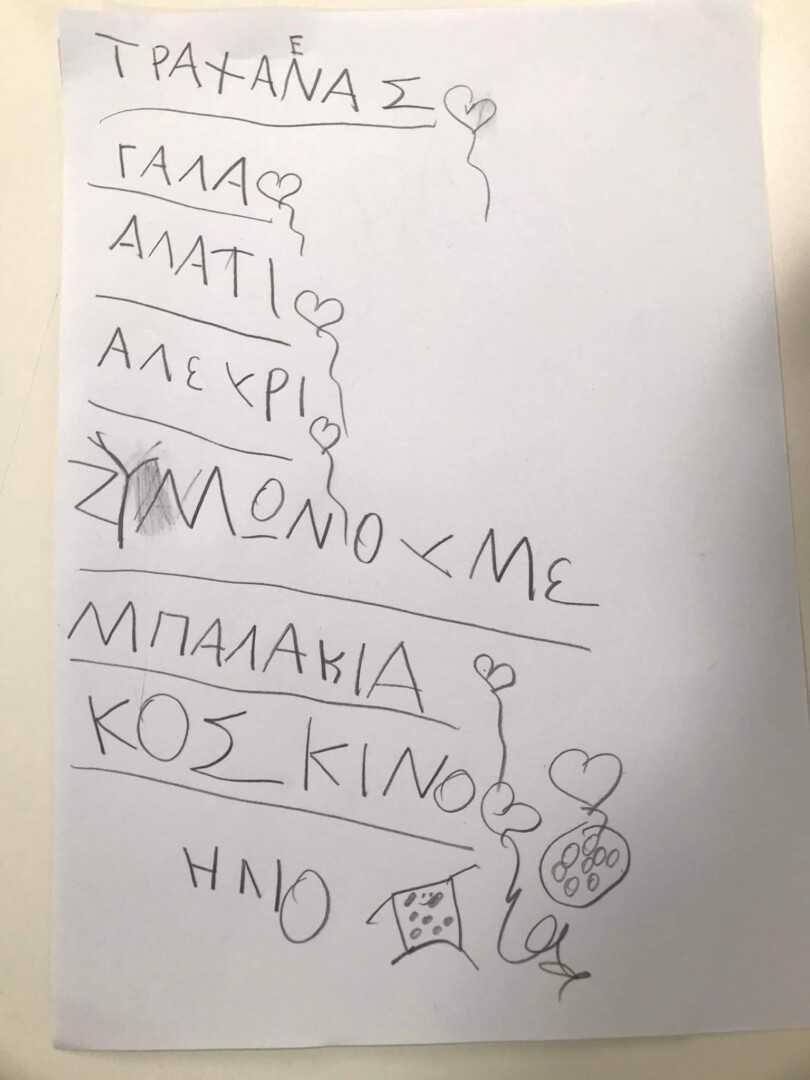 ΤΡΑΧΑΝΑΣ
ΓΑΛΑ
ΑΛΑΤΙ
ΑΛΕΥΡΙ
ΖΥΜΩΝΟΥΜΕ
ΜΠΑΛΑΚΙΑ
ΚΟΣΚΙΝΟ
ΗΛΙΟ